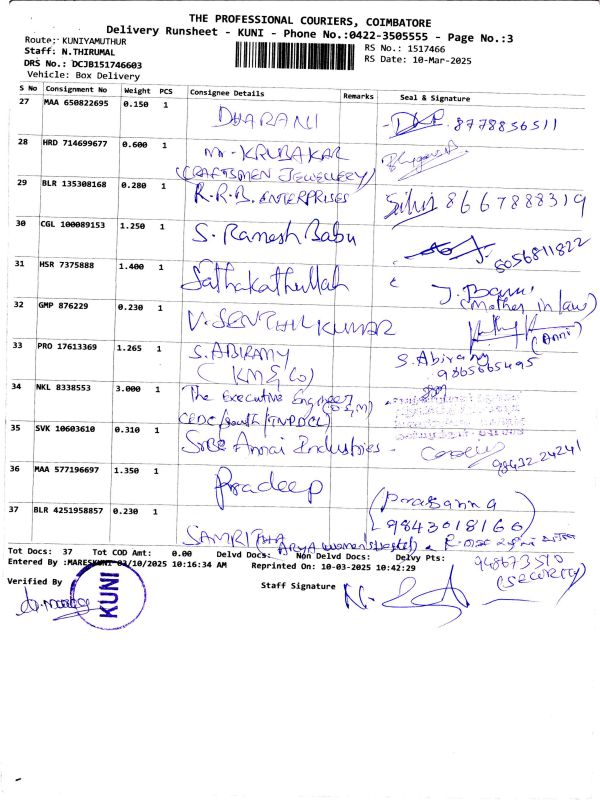 THE PROFESSIONAL COURIERS, COIMBATORE
Delivery Runsheet - KUNI - Phone No.:0422-3505555 - Page No.:3
Route: KUNIYAMUTHUR
RS No.: 1517466
Staff: N.THIRUMAL
RS Date: 10-Mar-2025
DRS No.: DCJB151746603
Vehicle: Box Delivery
S No Consignment No Weight PCS Consignee Details Remarks Seal & Signature
27 MAA 650822695 0.150 1 DHARANI 8778856511
28 HRD 714699677 0.600 1 Mr-KRUBAKAR
(CRAFTSMEN JEWELLERY)
29 BLR 135308168 0.280 1 R.R.B. ENTERPRISES 8667888319
30 CGL 100089153 1.250 1 S. Ramesh Babu 8056811822
31 HSR 7375888 1.400 1 Sathakathullah J. Banu
(Mother in law)
32 GMP 876229 0.230 1 V. SENTHIL KUMAR
(Anni)
33 PRO 17613369 1.265 1 S. ABIRAMY S. Abiramy
(KMG Co) 9865665495
34 NKL 8338553 3.000 1 The Executive Engineer (O&M)
CEDC/South/TNPDCL
35 SVK 10603610 0.310 1 Sree Annai Industries - 98432 24241
36 MAA 577196697 1.350 1 Pradeep (Prasanna
9843018166)
37 BLR 4251958857 0.230 1 SAMRITHA
ARYA Women's Hostel)
Tot Docs: 37 Tot COD Amt: 0.00 Delvd Docs: Non Delvd Docs: Delvy Pts:
948673510
(security)
Entered By :MARESKUNI 03/10/2025 10:16:34 AM Reprinted On: 10-03-2025 10:42:29
Verified By
Staff Signature
KUNI